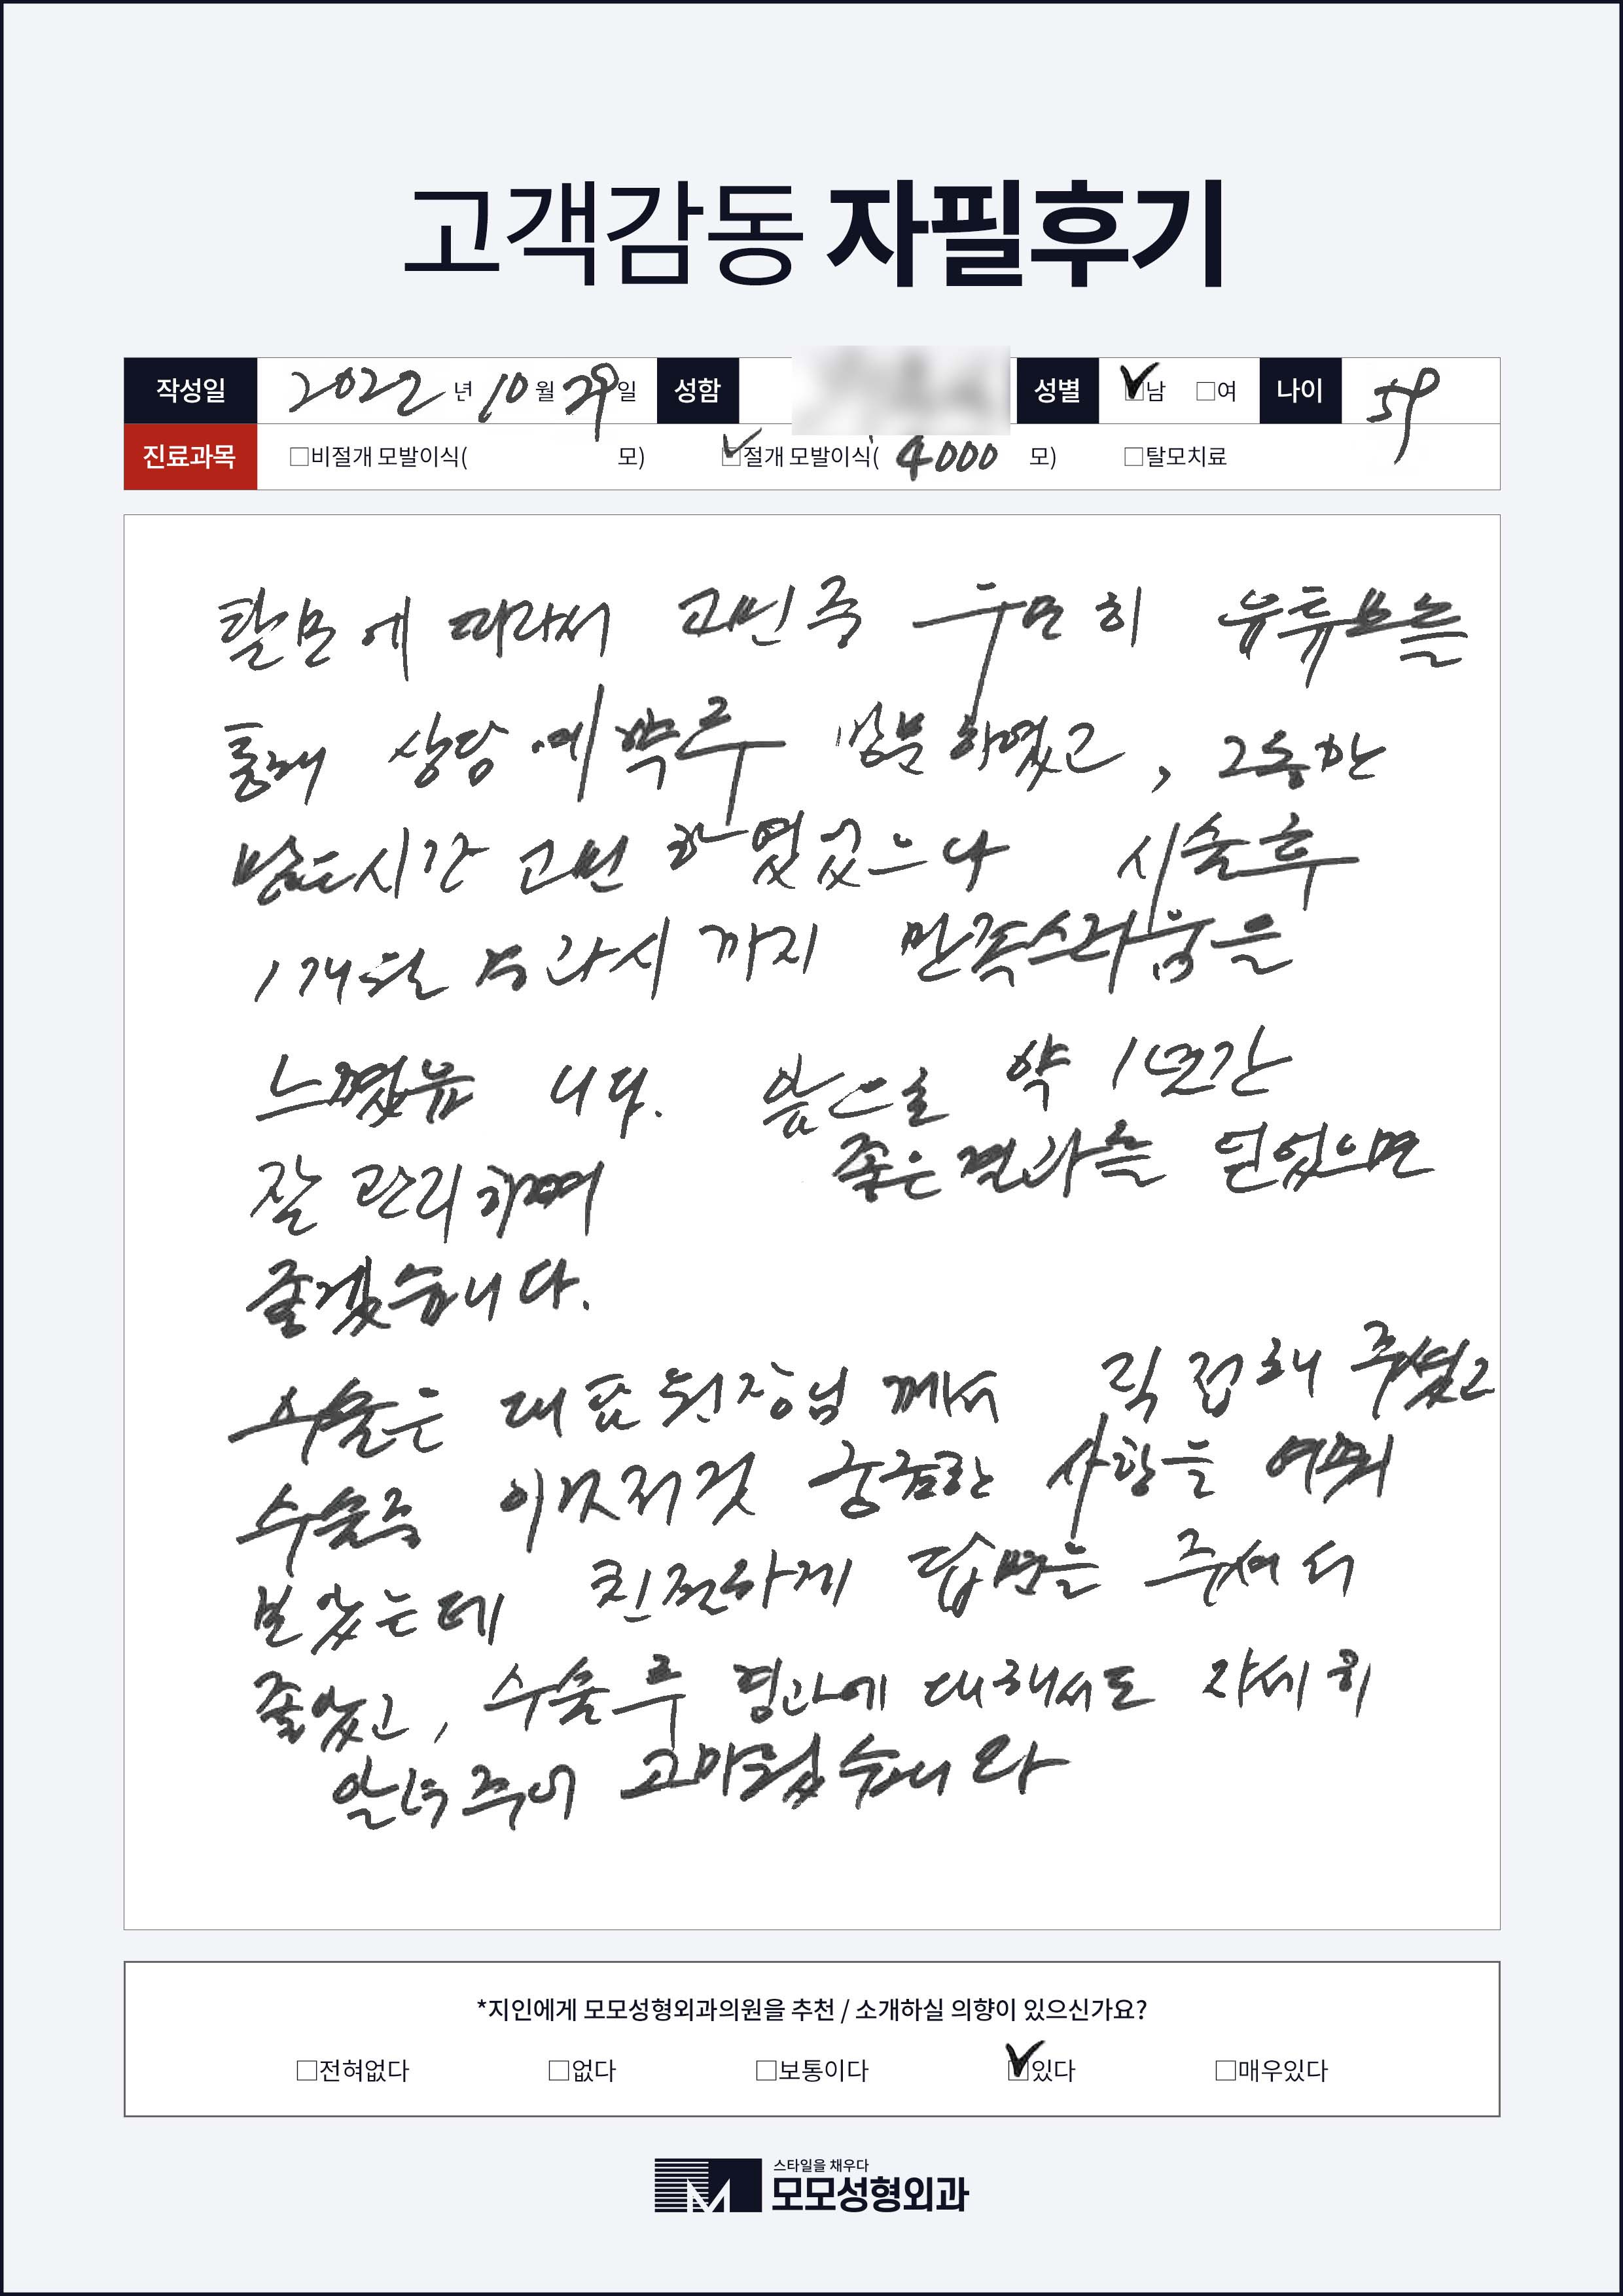 고객감동 자필후기
작성일 2022 년 10 월 29 일 성함 성별 ☑남 □여 나이 59
진료과목 □비절개 모발이식( 모) ☑절개 모발이식( 4000 모) □탈모치료
탈모에 따라서 고민중 우연히 유튜브를
통해 상담 예약후 방문하였고, 그동안
많은시간 고민 하였었으나 시술후
1개월 경과시 까지 만족스러움을
느꼈습 니다. 앞으로 약 1년간
잘 관리하여 좋은결과를 얻었으면
좋겠습니다.
수술은 대표원장님 께서 직접해 주셨고
수술중 이것저것 궁금한 사항을 여쭤
보았는데 친절하게 답변을 주셔서
좋았고, 수술후 경과에 대해서도 자세히
알려주어 고마웠습니다
*지인에게 모모성형외과의원을 추천 / 소개하실 의향이 있으신가요?
□전혀없다 □없다 □보통이다 ☑있다 □매우있다
스타일을 채우다
모모성형외과